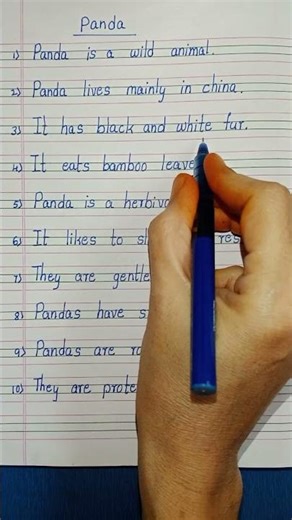 Panda
1) Panda is a wild animal.
2) Panda lives mainly in china.
3) It has black and white fur.
4) It eats bamboo
5) Panda is a
6) It likes to
7) They are
8) Pandas have
9) Pandas are
10) They are